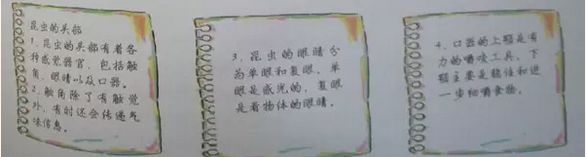 昆虫的头部
1、昆虫的头部有着各
种感觉器官，包括触
角、眼睛以及口器。
2、触角除了有触觉
外，有时还会传递气
味信息。
3、昆虫的眼睛分
为单眼和复眼。单
眼是感光的，复眼
是看物体的眼睛。
4、口器的上颚是有
力的嘴咬工具，下
颚主要是稳住和进
一步细嚼食物。